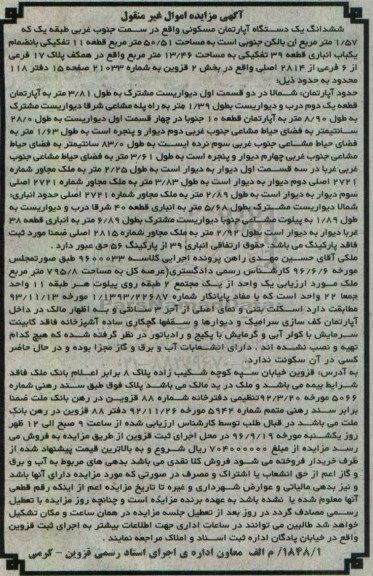 آگهی مزایده اموال غیر منقول
ششدانگ یک دستگاه آپارتمان مسکونی واقع در سمت جنوب غربی طبقه یک که
۱/۵۷ متر مربع آن بالکن جنوبی است به مساحت ۵۰/۵۱ متر مربع قطعه ۱۱ تفکیکی بانضمام
یکباب انباری قطعه ۳۹ تفکیکی به مساحت ۱۳/۴۶ متر مربع واقع در همکف پلاک ۱۷ فرعی
از ۶ فرعی از ۲۸۱۴ اصلی واقع در بخش ۲ قزوین به شماره ۲۱۰۳۳ صفحه ۱۵ دفتر ۱۱۸
محدود به حدود ذیل:
حدود آپارتمان: شمالا در دو قسمت اول دیواریست مشترک به طول ۳/۸۱ متر به آپارتمان
قطعه یک دوم درب و دیواریست بطول ۱/۳۹ متر به راه پله مشاعی شرقا دیواریست مشترک
به طول ۸/۹۰ متر به آپارتمان قطعه ۱۰ جنوبا در چهار قسمت اول دیواریست به طول ۲۸/۰
سانتیمتر به فضای حیاط مشاعی جنوب غربی دوم دیوار و پنجره است به طول ۱/۶۳ متر به
فضای حیاط مشاعی جنوب غربی سوم نرده ایست به طول ۸۳/۰ سانتیمتر به فضای حیاط
مشاعی جنوب غربی چهارم دیوار و پنجره است به طول ۳/۶۱ متر به فضای حیاط مشاعی جنوب
غربی غربا در سه قسمت اول دیوار به دیوار است به طول ۲/۲۵ متر به ملک مجاور شماره
۲۷۲۱ اصلی دوم دیوار به دیوار است به طول ۳/۸۳ متر به ملک مجاور شماره ۲۷۲۱ اصلی
سوم دیوار به دیوار است به طول ۲/۸۹ متر به ملک مجاور شماره ۲۷۲۱ اصلی حدود انباری:
شمالا دیواریست مشترک بطول ۵/۶۸ متر به انباری قطعه ۴۰ شرقا درب و دیواریست به
طول ۱/۸۹ به پیلوت مشاعی جنوبا دیواریست مشترک بطول ۶/۸۹ متر به انباری قطعه ۳۸
غربا دیوار به دیوار است بطول ۲/۹۲ متر به ملک مجاور شماره ۲۸۱۵ اصلی ضمنا مورد ثبت
فاقد پارکینگ می باشد. حقوق ارتفاقی انباری ۳۹ از پارکینگ ۵۶ حق عبور دارد.
ملکی آقای حسین مهدی راهن پرونده اجرایی کلاسه ۹۶۰۰۰۳۳ طبق صورتمجلس
مورخه ۹۶/۶/۶ کارشناس رسمی دادگستری(عرصه کل به مساحت ۷۹۵/۸ متر مربع
ملک مورد ارزیابی یک واحد از یک مجتمع ۲ طبقه روی پیلوت هر طبقه ۱۱ واحد
جمعا ۲۲ واحد است که با مفاد پایانکار شماره ۱/۱۳۹۳/۲۲۶۸۷ مورخه ۹۳/۱۱/۱۳
مطابقت دارد. اسکلت بتنی و نمای اصلی از آجر ۳ سانتی و به اظهار مالک در داخل
آپارتمان کف سازی سرامیک و دیوارها و سقفها گچکاری ساده آشپزخانه فاقد کابینت
سرمایش با کولر آبی و گرمایش با پکیج و رادیاتور در نظر گرفته شده که هیچ کدام
تهیه و نصب نشده اند. دارای انشعابات آب و برق و گاز مجزا بوده و در حال حاضر
کسی در آن سکونت ندارد.
به آدرس: قزوین خیابان سپه کوچه شکیب زاده پلاک ۸ برابر اعلام بانک ملک فاقد
شرایط بیمه می باشد و ملک در ید مالک می باشد پلاک فوق طبق سند رهنی شماره
۵۰۶۶ مورخه ۹۲/۳/۲۰ تنظیمی دفترخانه شماره ۸۸ قزوین در رهن بانک ملت ضمنا
برابر سند رهنی متمم شماره ۵۹۴۲ مورخه ۹۲/۱۱/۲۶ دفتر ۸۸ قزوین در رهن بانک
ملت می باشد در قبال طلب توسط کارشناس ارزیابی شده از ساعت ۹ صبح الی ۱۲ ظهر
روز یکشنبه مورخه ۹۶/۹/۱۹ در محل اجرای ثبت قزوین از طریق مزایده به فروش می
رسد مزایده از مبلغ ۷۰۴۰۰۰۰۰۰ ریال شروع و به بالاترین قیمت پیشنهاد شده از
طرف خریدار فروخته می شود فروش کلا نقدی می باشد بدهی های مربوط به آب و برق
و گاز اعم از حق انشعاب یا اشتراک و مصرف در صورتی که مورد مزایده دارای آنها باشد
و نیز بدهی مالیاتی و عوارض شهرداری و غیره تا تاریخ مزایده اعم از اینکه رقم قطعی
آنها معلوم شده یا نشده باشد به عهده برنده مزایده است و چنانچه روز مزایده با تعطیل
رسمی مصادف گردد در روز بعد از تعطیل جلسه مزایده در همان ساعت و مکان تشکیل
خواهد شد طالبین می توانند در ساعات اداری جهت اطلاعات بیشتر به اجرای ثبت قزوین
واقع در خیابان پادگان اداره ثبت اسناد و املاک مراجعه نمایند.
۱۸۴۸/۱/ م الف معاون اداره ی اجرای اسناد رسمی قزوین - کرمی